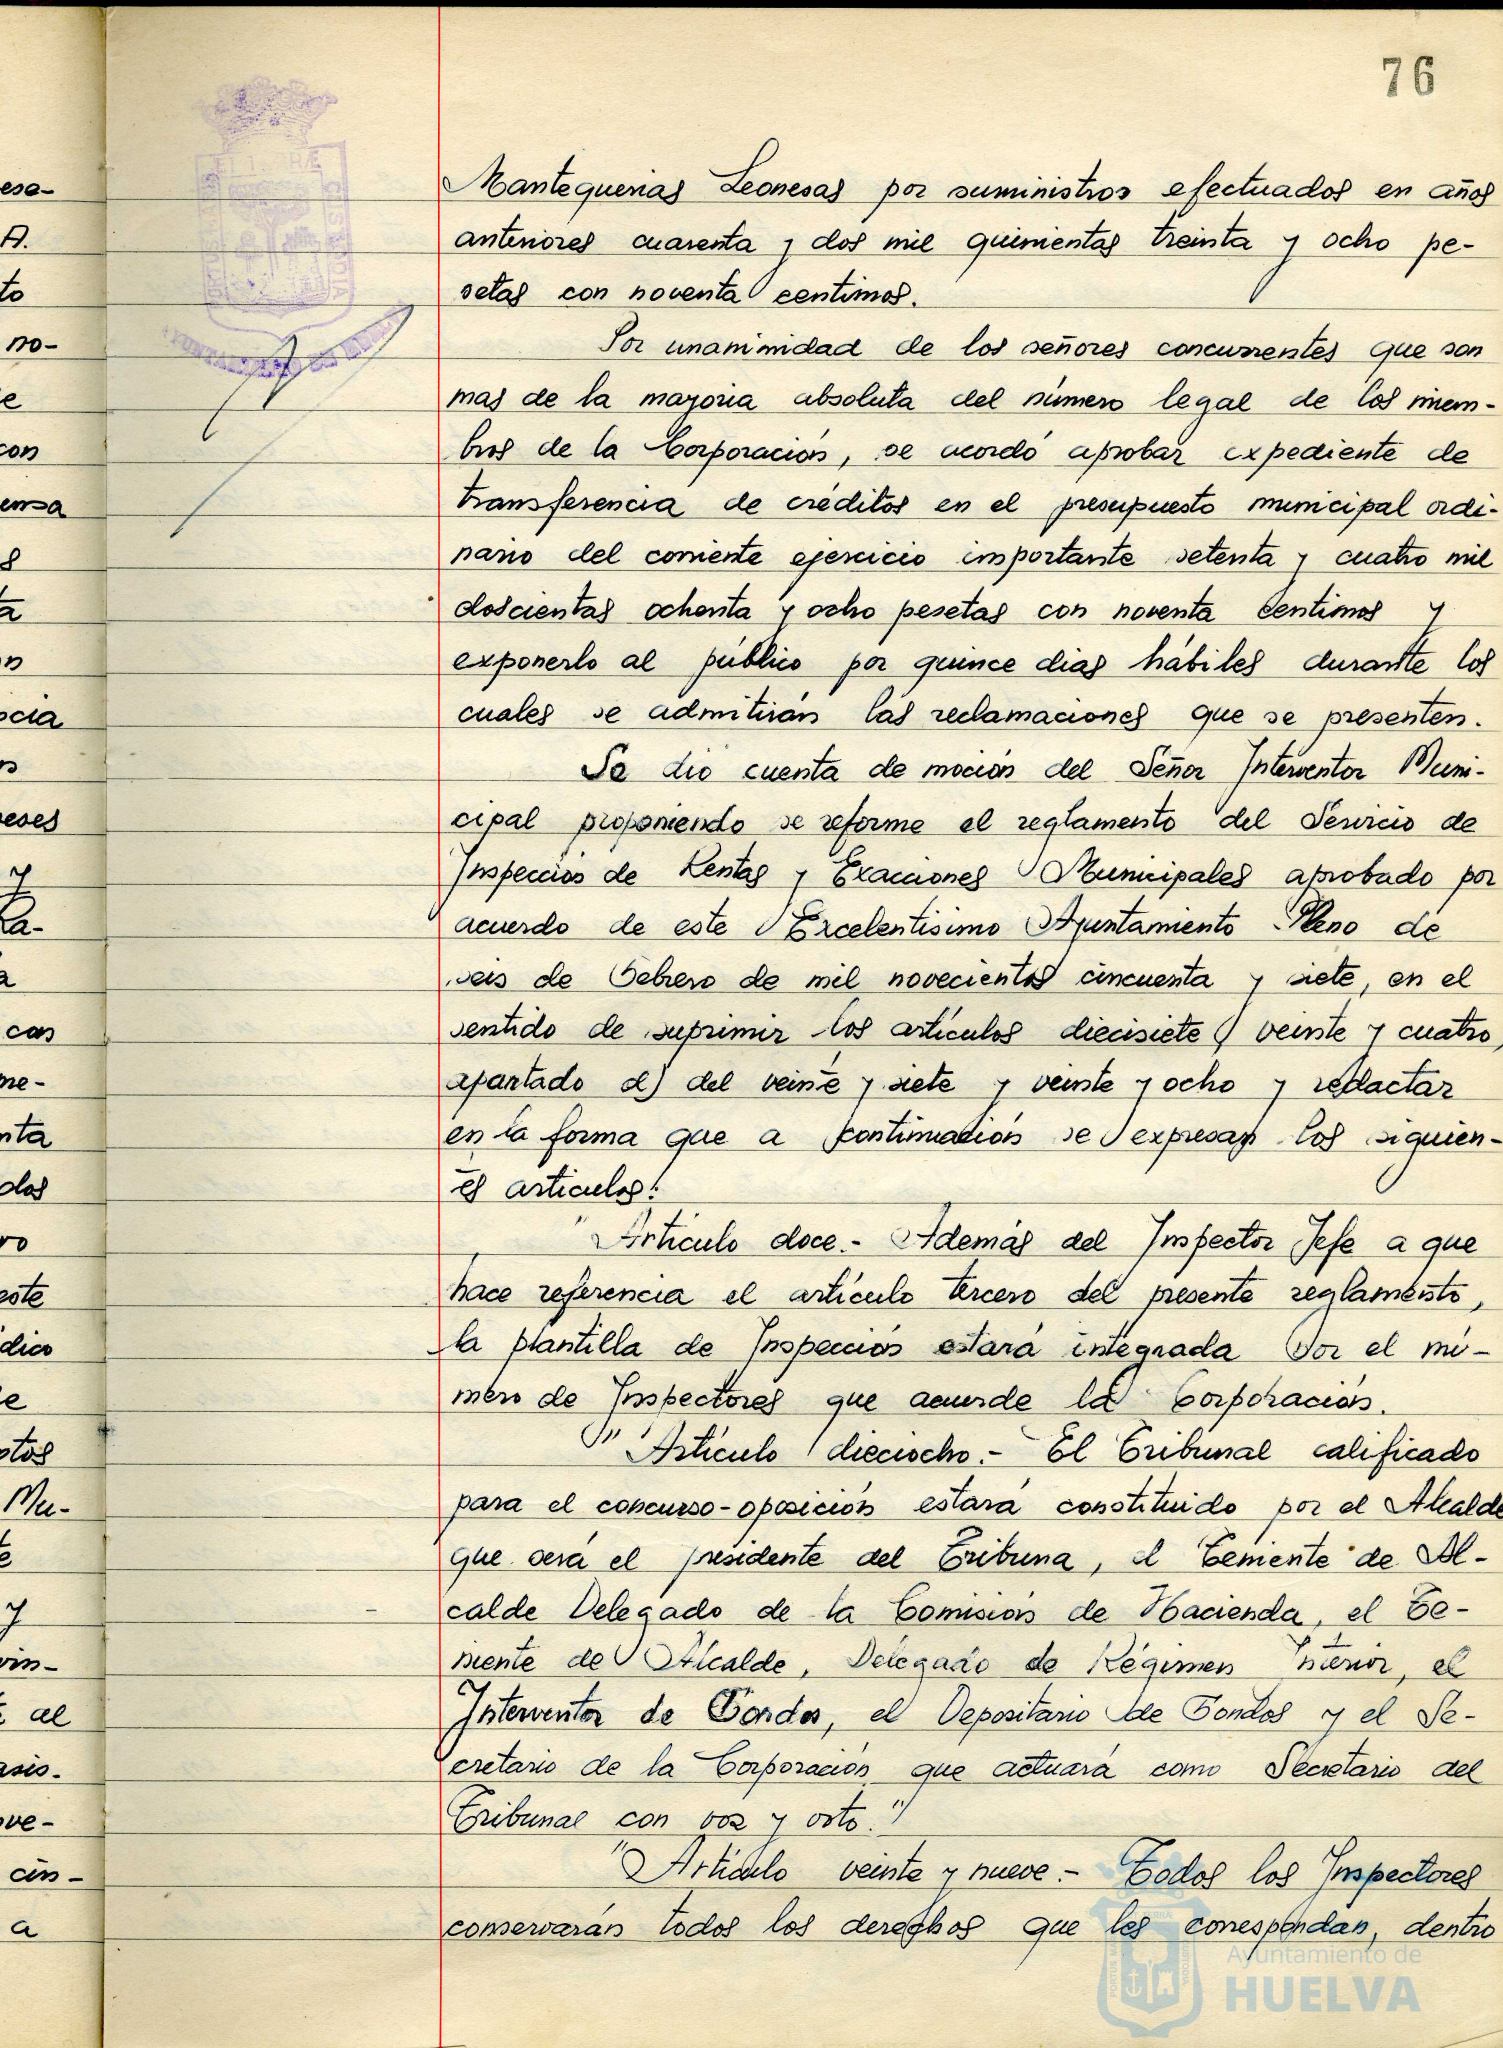 76
Mantequerias Leonesas por suministros efectuados en años
anteriores cuarenta y dos mil quinientas treinta y ocho pe-
setas con noventa centimos.
Por unanimidad de los señores concurrentes que son
mas de la mayoria absoluta del número legal de los miem-
bros de la Corporación, se acordó aprobar expediente de
transferencia de créditos en el presupuesto municipal ordi-
nario del corriente ejercicio importante setenta y cuatro mil
doscientas ochenta y ocho pesetas con noventa centimos y
exponerlo al público por quince dias hábiles durante los
cuales se admitirán las reclamaciones que se presenten.
Se dio cuenta de moción del Señor Interventor Muni-
cipal proponiendo se reforme el reglamento del Servicio de
Inspección de Rentas y Exacciones Municipales aprobado por
acuerdo de este Excelentísimo Ayuntamiento Pleno de
seis de Febrero de mil novecientos cincuenta y siete, en el
sentido de suprimir los artículos diecisiete y veinte y cuatro,
apartado d) del veinte y siete y veinte y ocho y redactar
en la forma que a continuación se expresan los siguien-
es articulos:
"Artículo doce.- Además del Inspector Jefe a que
hace referencia el artículo tercero del presente reglamento,
la plantilla de Inspección estará integrada por el nú-
mero de Inspectores que acuerde la Corporación.
" "Artículo dieciocho.- El Tribunal calificado
para el concurso-oposición estará constituido por el Alcalde
que será el presidente del Tribuna, el Teniente de Al-
calde Delegado de la Comisión de Hacienda, el Te-
niente de Alcalde, Delegado de Régimen Interior, el
Interventor de Fondos, el Depositario de Fondos y el Se-
cretario de la Corporación que actuará como Secretario del
Tribunal con voz y voto."
"Artículo veinte y nueve.- Todos los Inspectores
conservarán todos los derechos que les correspondan, dentro
Ayuntamiento de
HUELVA